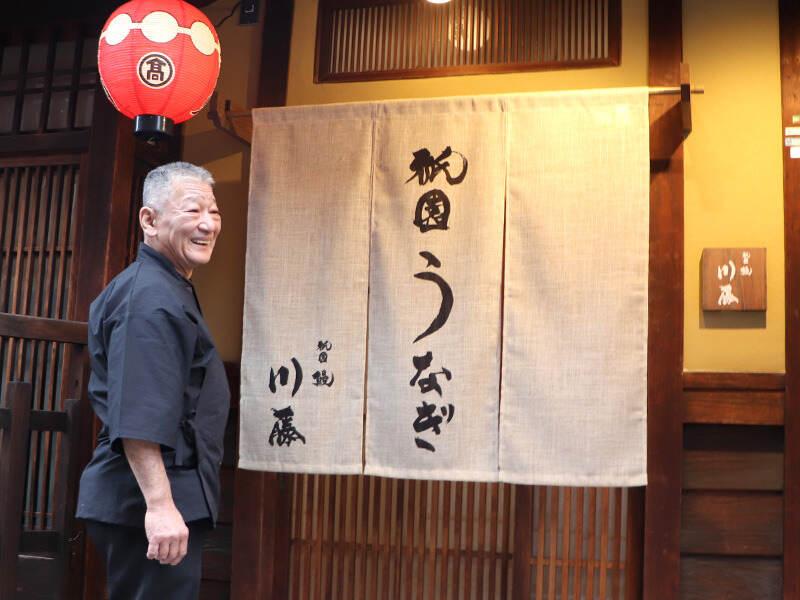 髙
祇園
うなぎ
祇園
鰻
川藤
祇園
鰻
川藤